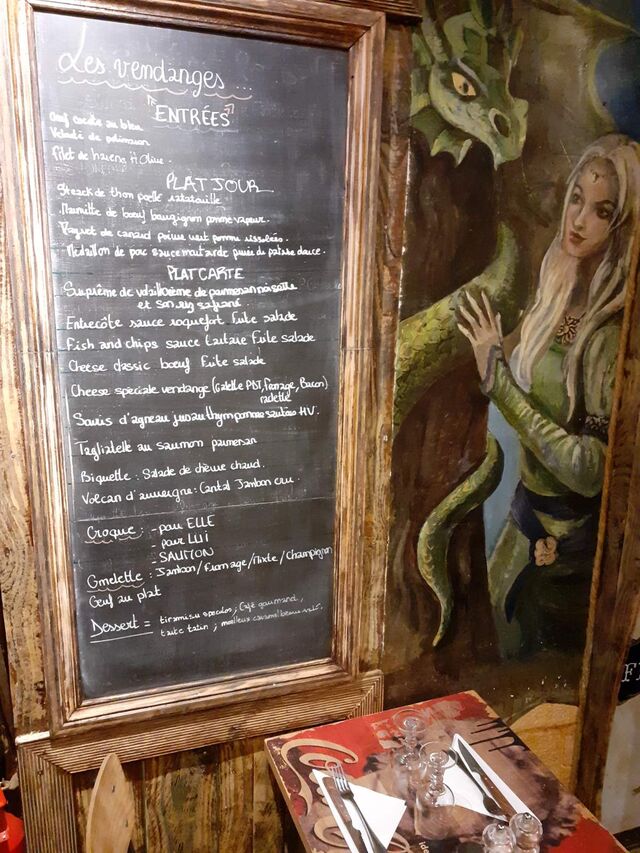 Les vendanges ...
ENTRÉES
Oeuf cocotte au bleu
Velouté de potimaron
Filet de hareng H Olive.
PLAT JOUR
Steack de thon poelle ratatouille
Marmitte de bœuf bourgignon pomme vapeur.
de canard poivre vert pomme rissolées.
Médaillon de porc sauce moutarde purée de patate douce.
PLAT CARTE
Suprême de volaille crème de parmesan noisette
et son riz safrané.
Entrecôte sauce roquefort frite salade
Fish and chips sauce tartare frite salade
Cheese classic bœuf frite salade
Cheese spéciale vendange (Galette PDT, fromage, Bacon)
raclette
Souris d'agneau jus au thym pomme sautées HV.
Tagliatelle au saumon parmesan
Biquette : Salade de chèvre chaud.
Volcan d'auvergne : Cantal Jambon cru.
Croque : - pour ELLE
- pour LUI
- SAUMON
Omelette : Jambon / fromage / Mixte / Champignon
Oeuf au plat
Dessert = tiramisu speculos ; Café gourmand,
tarte tatin ; moelleux caramel beurre salé.